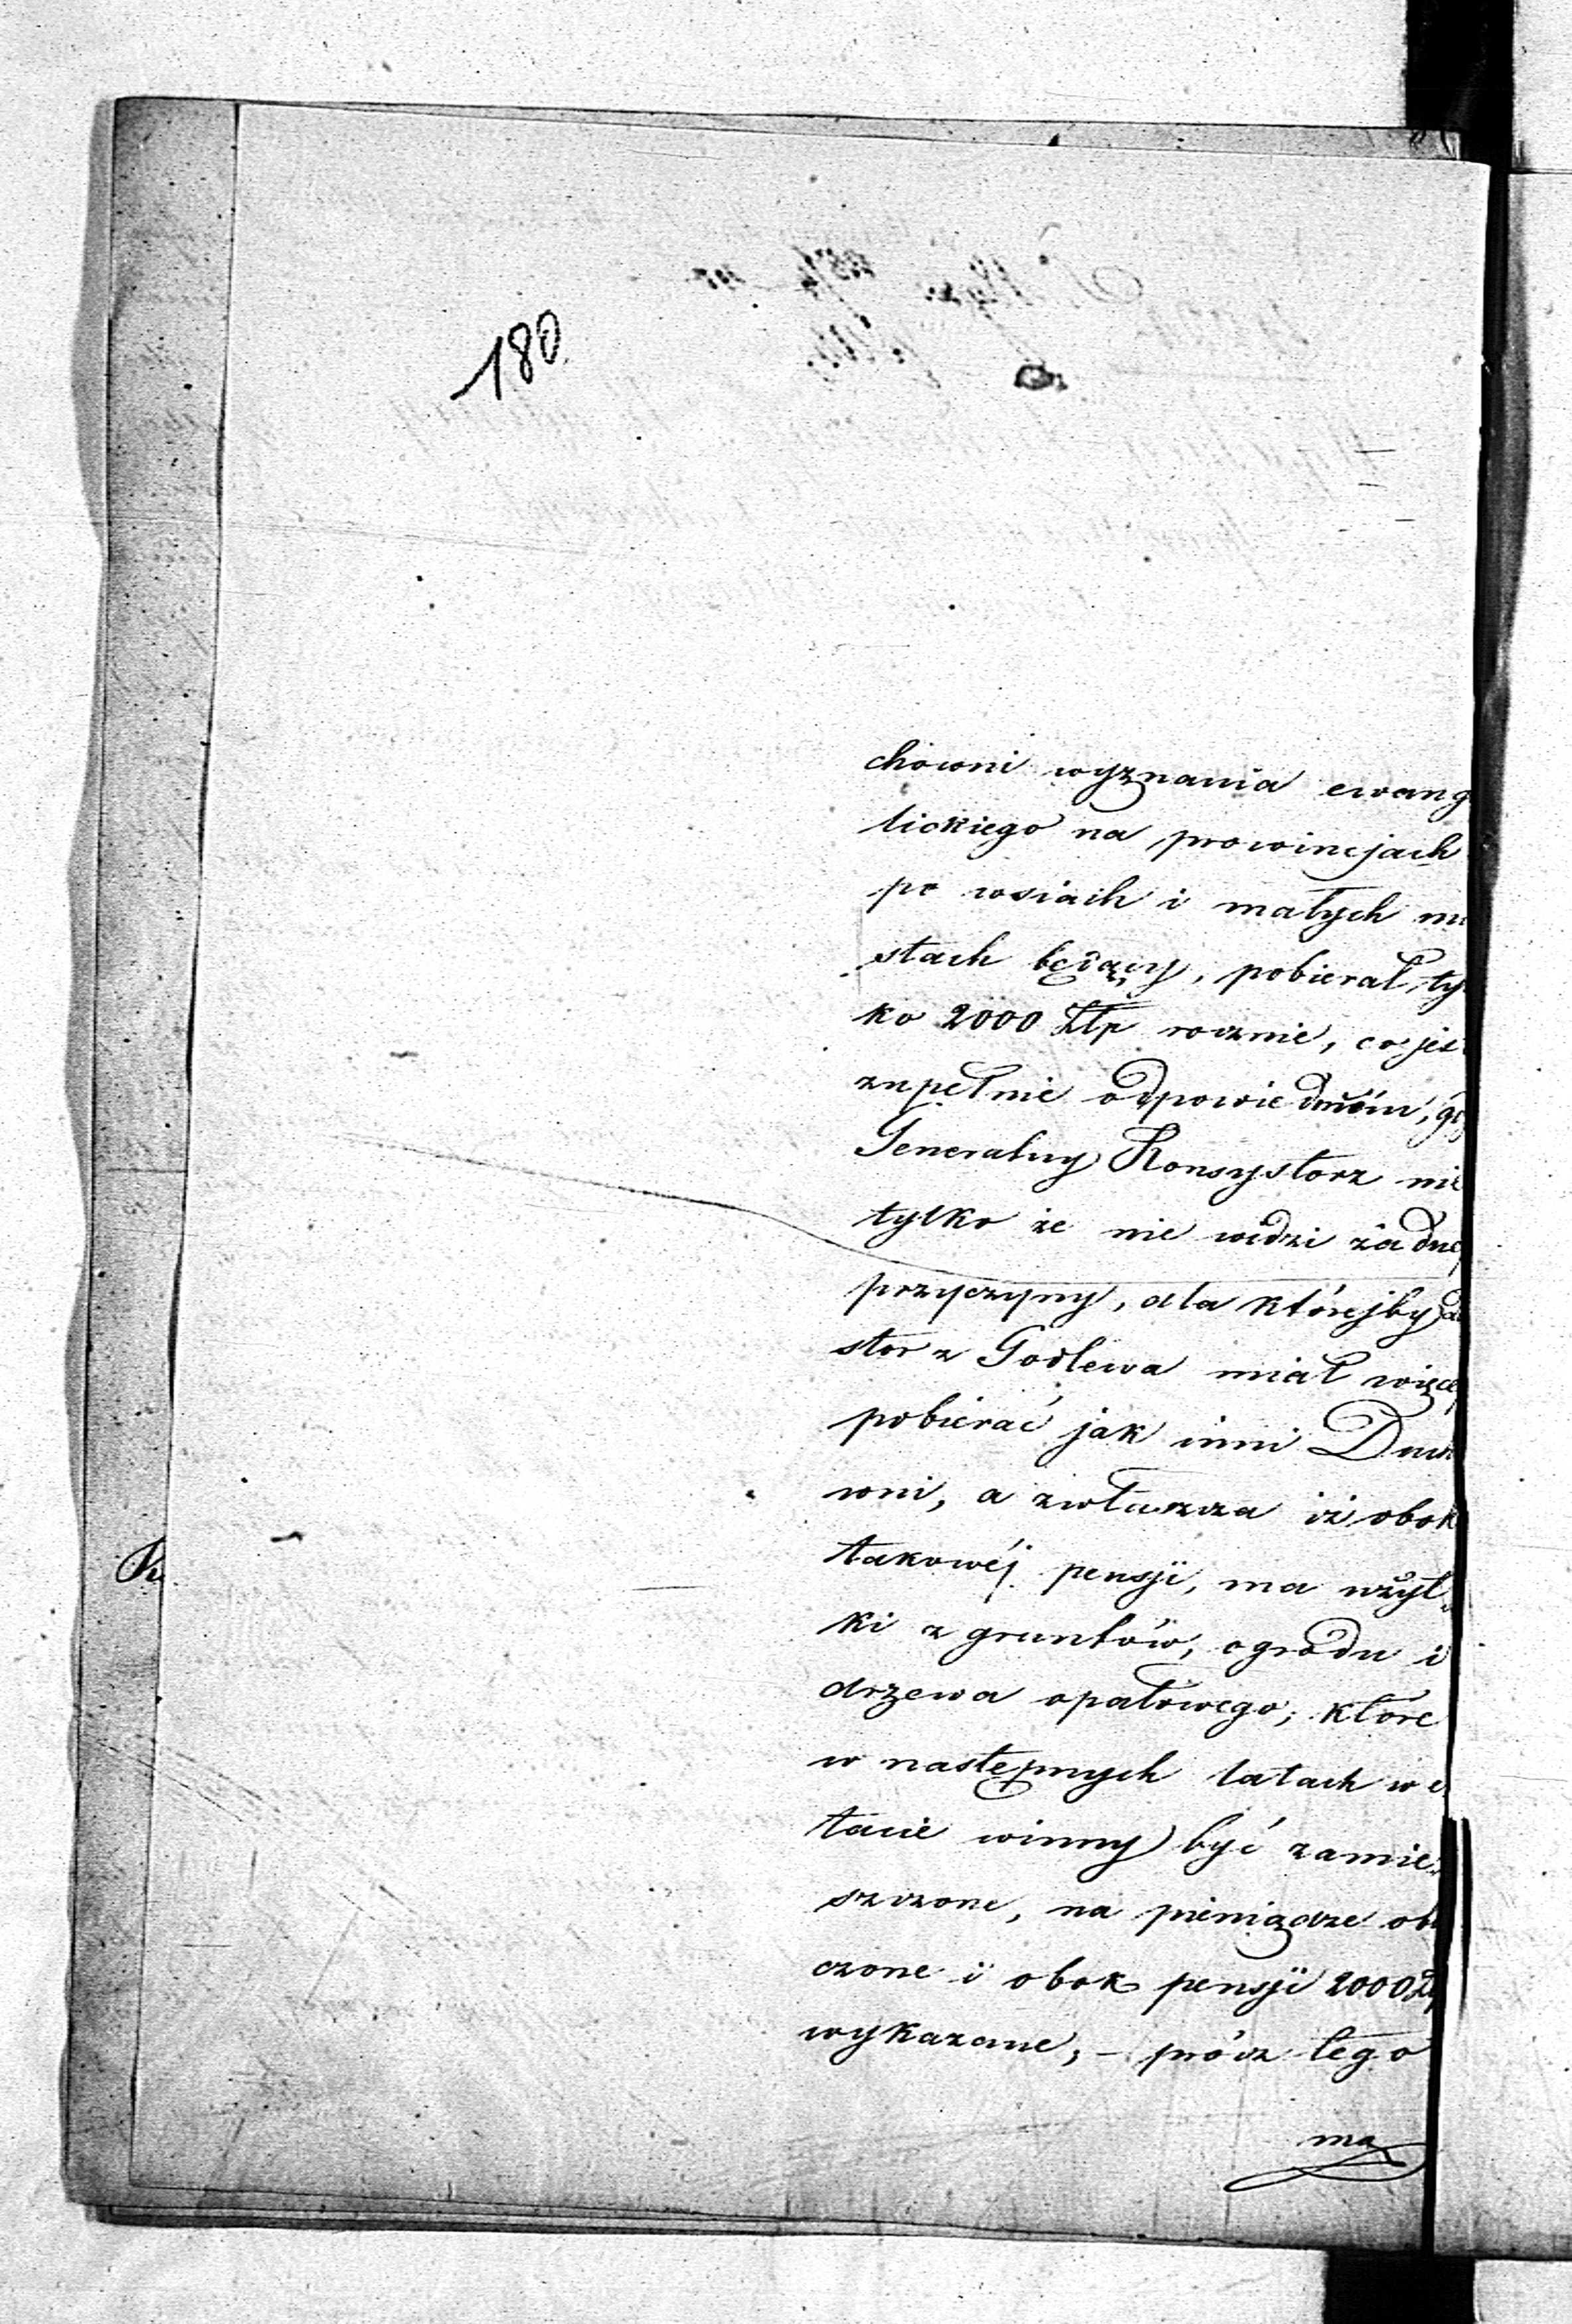 180
chowni wyznania ewang
lickiego na prowincjach
po wsiach i małych mi
stach będący, pobierał ty
ko 2000 Złp rocznie, co jes
zupełnie odpowiedniém, gd
Generalny Konsystorz nie
tylko że nie widzi żadnej
przyczyny, dla którejby
stor z Godlewa miał więcej
pobierać jak inni Duch
wni, a zwłaszcza iż obok
takowéj pensji, ma użyt
ki z gruntów, ogrodu i
drzewa opałowego; które
w następnych latach w e
tacie winny być zamie
szczone, na pieniądze obl
czone i obok pensji 2000 Zł
wykazane, – prócz tego
ma